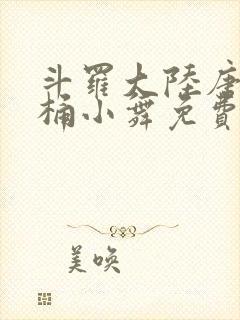 斗羅大陸唐
桶小舞免費
美喚